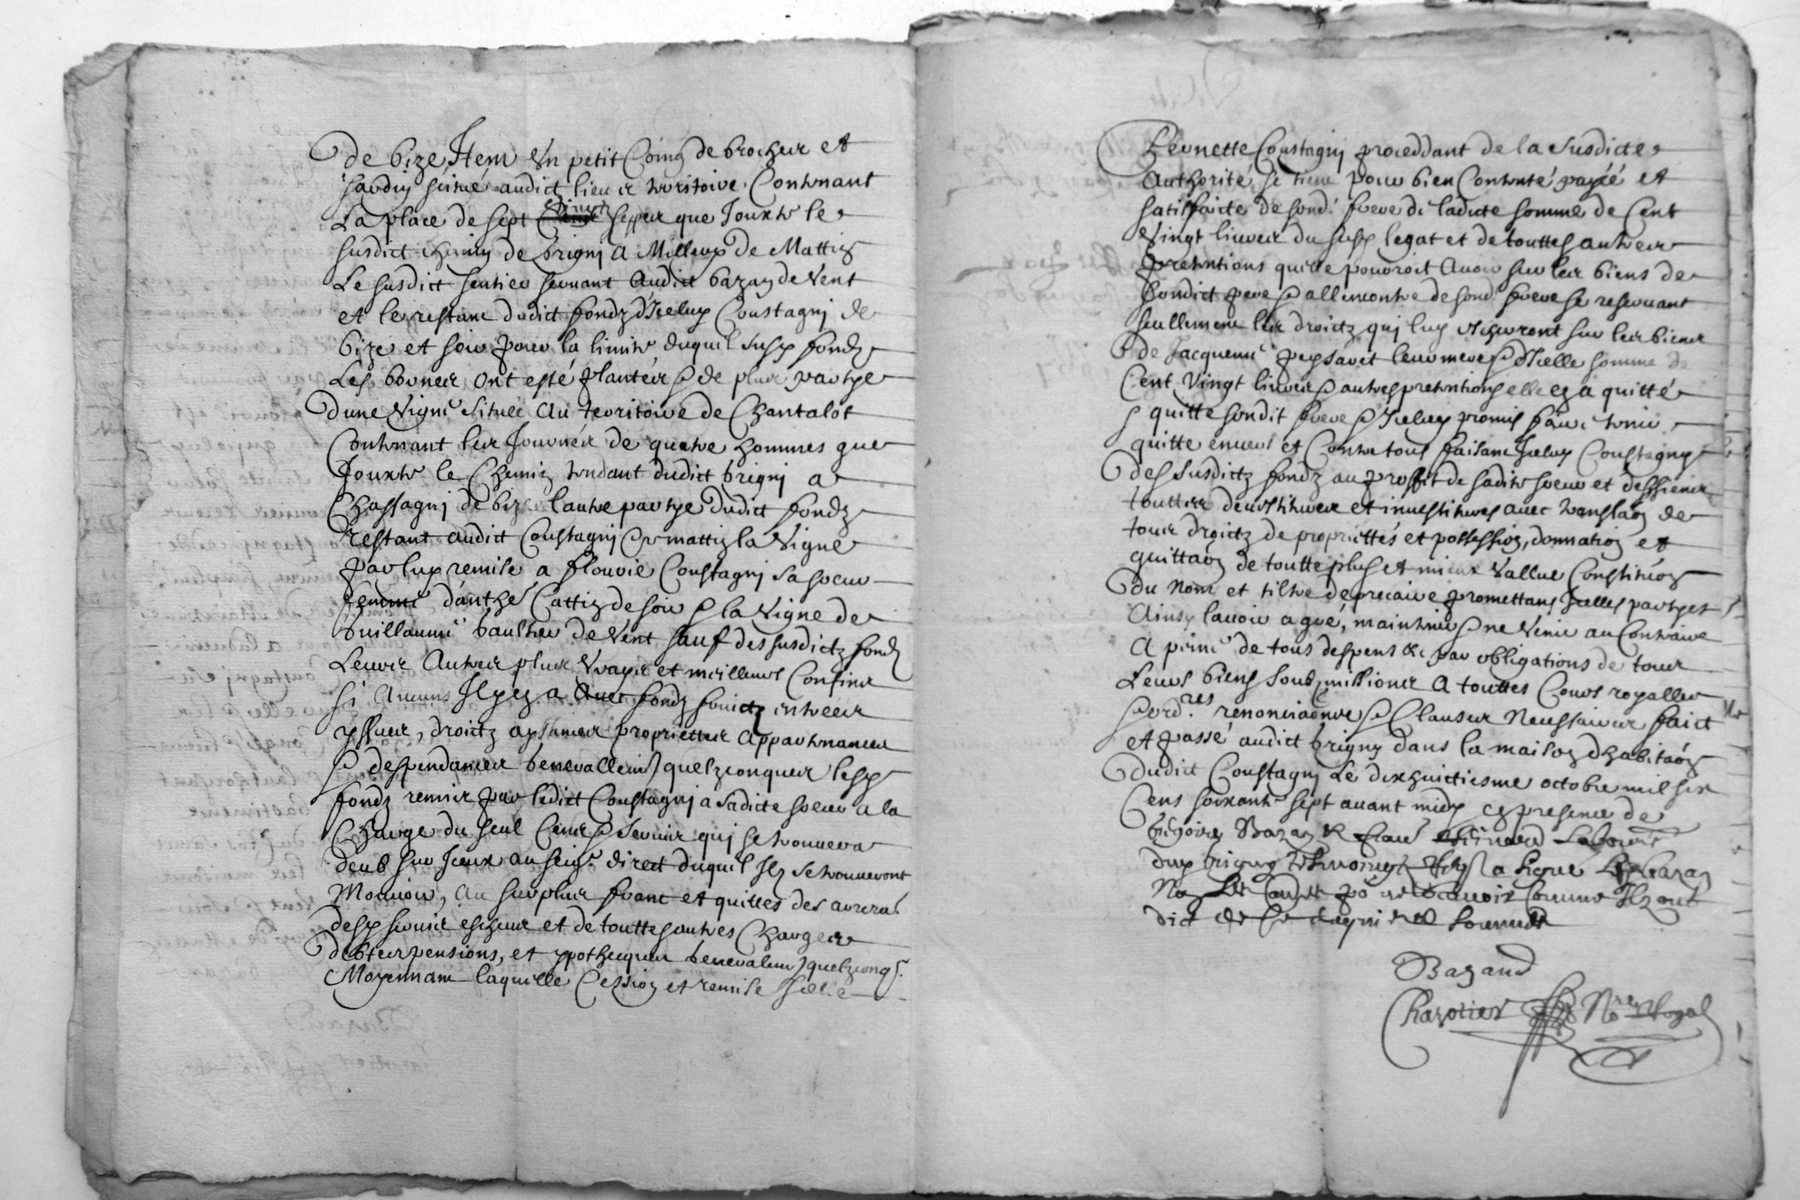 de bize Item Un petit Coing de brocher et
jardin scitué audict lieu et territoire Contenant
La place de sept que Jouxte le
susdict chemin de brigny A Millery de Mattin
Le susdict sentier servant Audict bazan de Vent
et le restant dudict fondz d'Iceluy Coustagny de
bize et soir pour la limite duquel susd fondz
Les bornes ont esté plantées & de plus partye
dune Vigne Située Au territoire de Chantalot
Contenant les Journées de quatre hommes que
Jouxte le Chemin tendant dudict brigny a
Chassagny de bize lautre partye dudict fondz
restant audict Coustagny de mattin la Vigne
par luy remise a flourie Coustagny sa soeur
femme d'anthe Cattin de soir & la Vigne de
Guillaume baultier de Vent sauf desusdictz fondz
Leurs Autres plus Vrays et meilleurs Confins
si Aucuns Il y en a Avec fondz fruictz entrees
yssues, droictz aysances proprietes appartenances
& despendances benevallement quelzconques lesd
fondz remis par ledict Coustagny a sadicte soeur a la
Charge du seul Cens & servis qui se trouvera
deub sur Iceux au seigr direct duquel Ilz se trouveront
Mouvoir, Au surplus franc et quittes des arrera
desd servis escheus et de touttes autres Charges
debtes pensions, et ypotheques quelzconqs.
Moyennant laquelle Cession et remise Icelle
Leonette Coustagny proceddant de la susdicte
Authorité se tient pour bien Contente payée et
satisfaicte de sond. frere de ladicte somme de Cent
Vingt livres du susd legat et de touttes autres
pretentions quelle pouvroit Avoir sur les biens de
sondict pere & allencontre de sond. frere se reservant
seullement les droictz qui luy escheront sur les biens
de Jacqueme leur mere & d'Icelle somme de
Cent Vingt livres & autres pretentions elle en a quitté
& quitte sondit frere & Iceluy promis faire tenir
quitte envers et Contre tous faisant Iceluy Coustagny
des susdictz fondz au proffit de sadite soeur et des siens
touttes devestitures et investitures avec translaon de
tous droictz de proprietés et possession, donnation et
quittaon de toutte plus et mieux Vallue Constituon
du Nom et tiltre de precaire promettans Icelles partyes
Ainsy lavoir agré, maintenir & ne Venir au Contraire
A peine de tous despens &c par obligations de tous
Leurs biens soubzmissions A touttes Cours royalles
& ord.res renonciaons & Clauses Necessaires faict
et passé audict brigny dans la maison dhabitaon
dudict Coustagny Le dixhuictiesme octobre mil six
Cens soixante sept avant midy en presence de
Gregoire Bazan &
dud brigny tesmoingz a signé Led bazan
Non pour ne scavoir Comme Ilz ont
dict de ce enquis &
Bazand
Chazottier Nre Royal